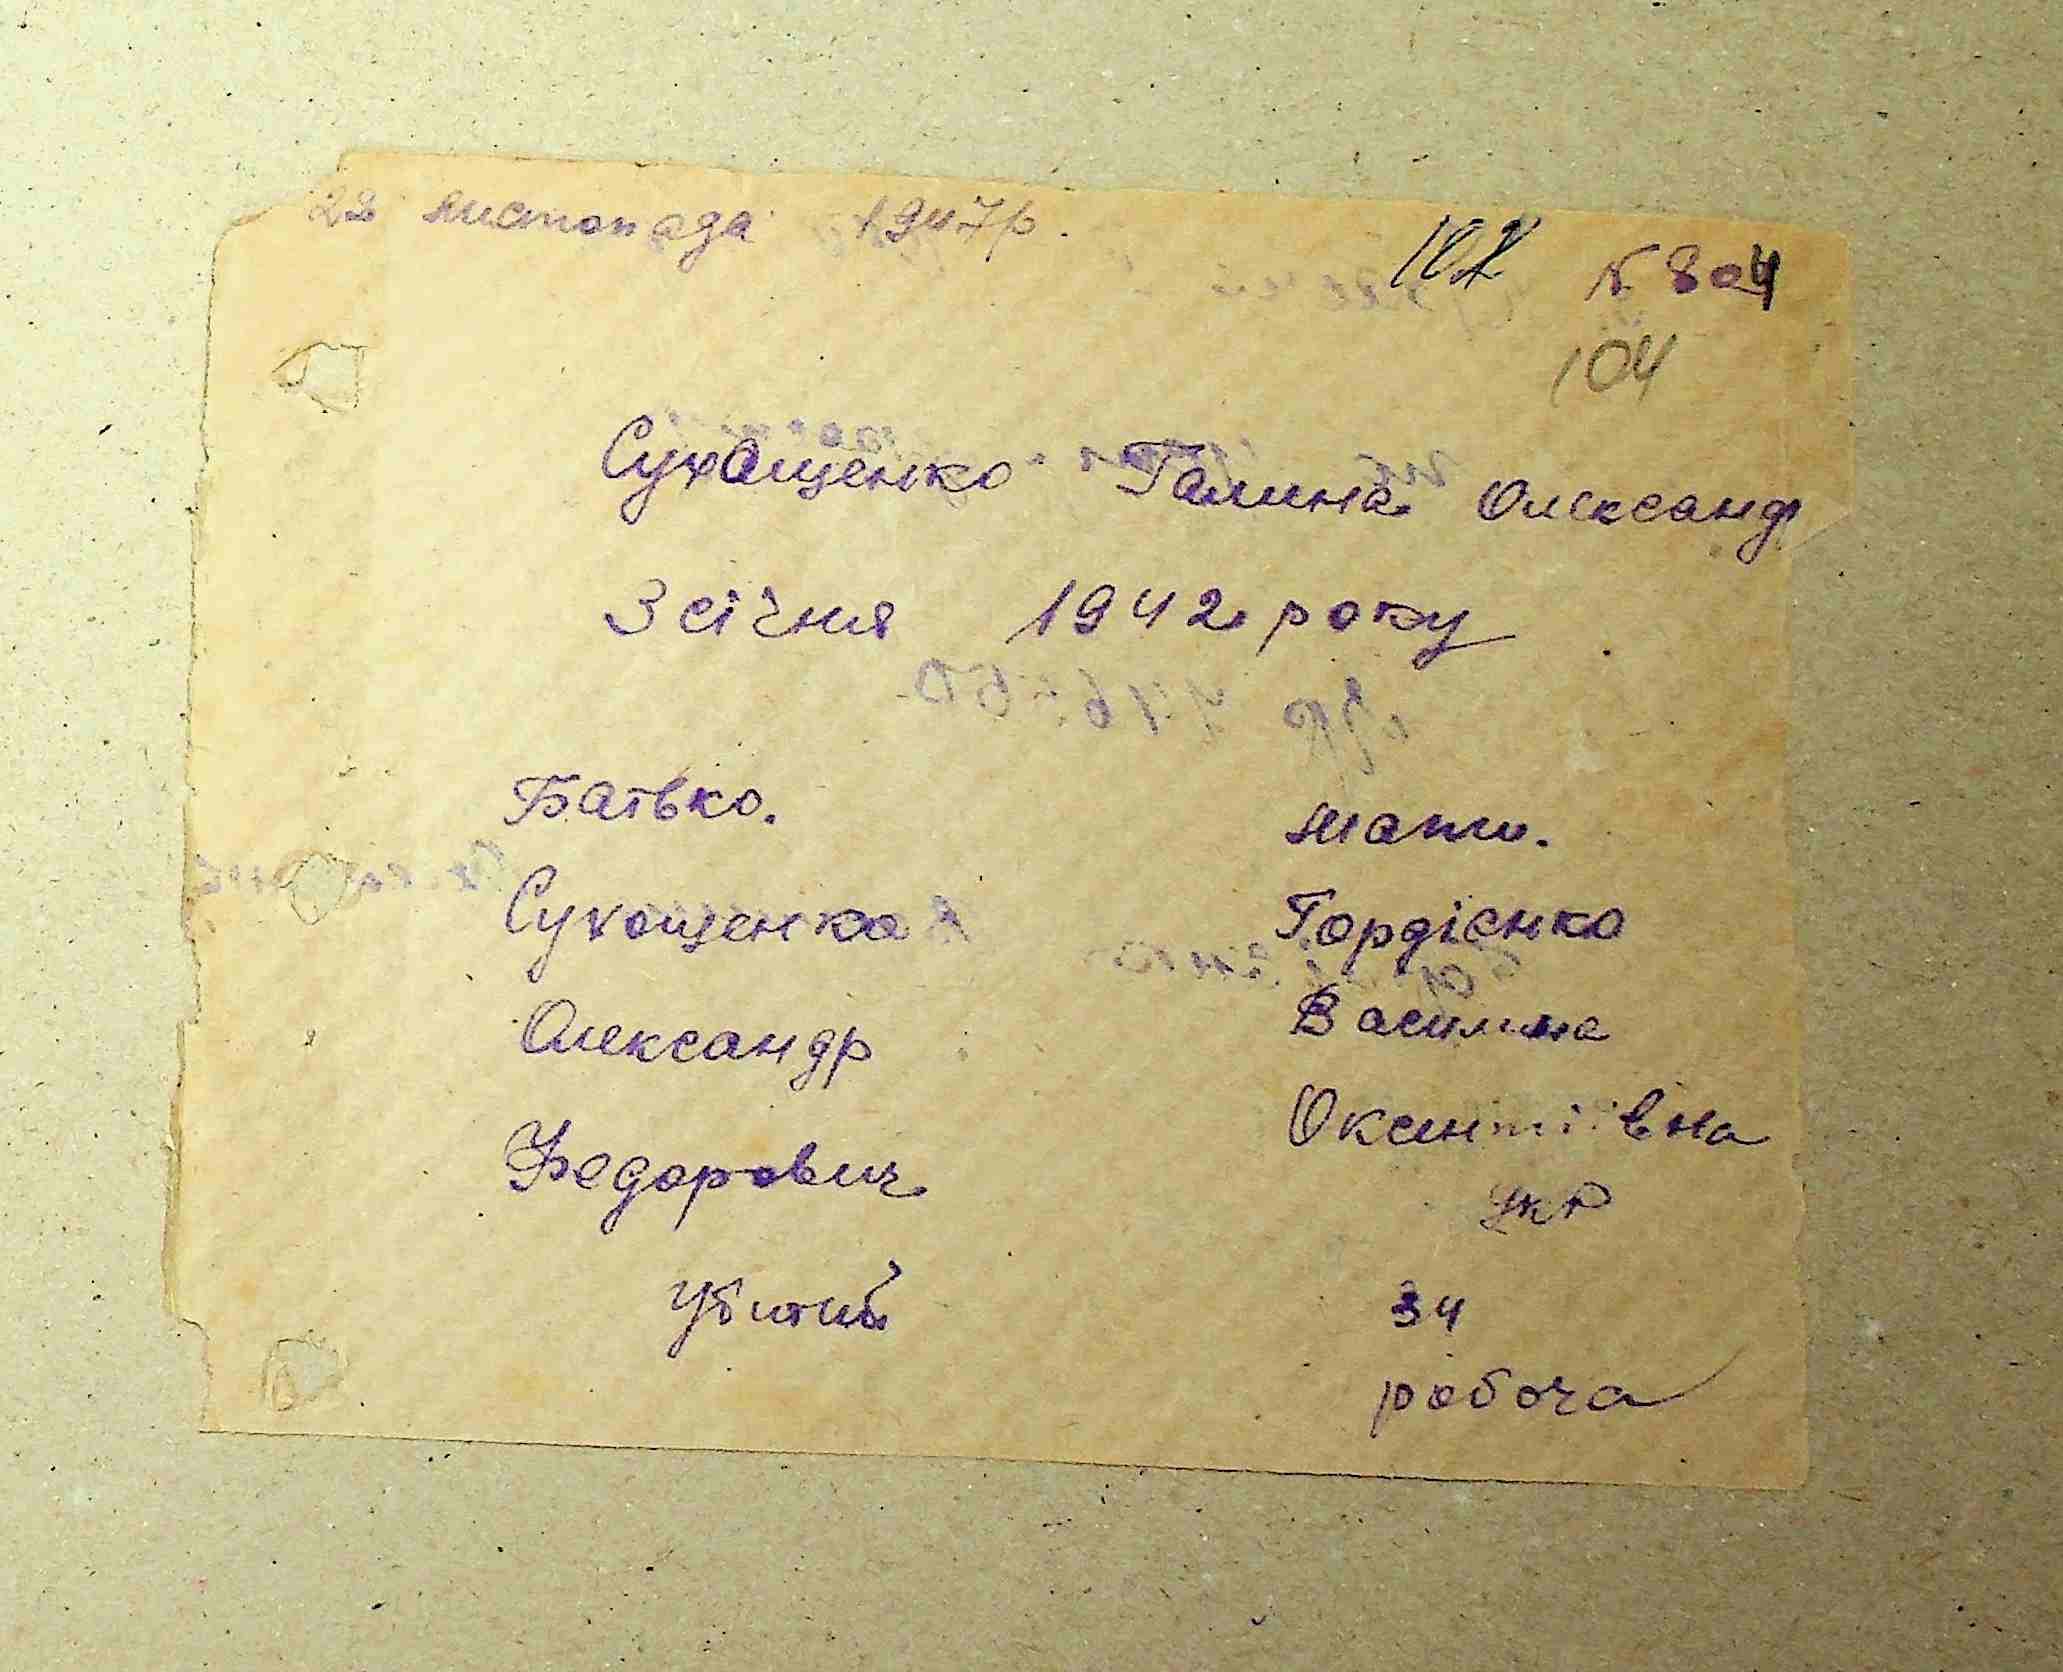 22 листопада 1947р.
102 № 804
104
Сухащенко Галина Олександр
3 січня 1942 року
Батько. мати.
Сухощенко Гордієнко
Олександр Василина
Федорович Оксентіївна
укр
Убитий 34
робоча